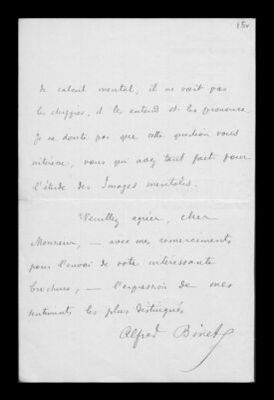 15v
de calcul mental, il ne voit pas
les chiffres, il les entend et les prononce.
Je ne doute pas que cette question vous
intéresse, vous qui avez tant fait pour
l'étude des Images mentales.
Veuillez agréer, cher
Monsieur, — avec mes remerciements
pour l'envoi de votre intéressante
brochure, — l'expression de mes
sentiments les plus distingués
Alfred Binet